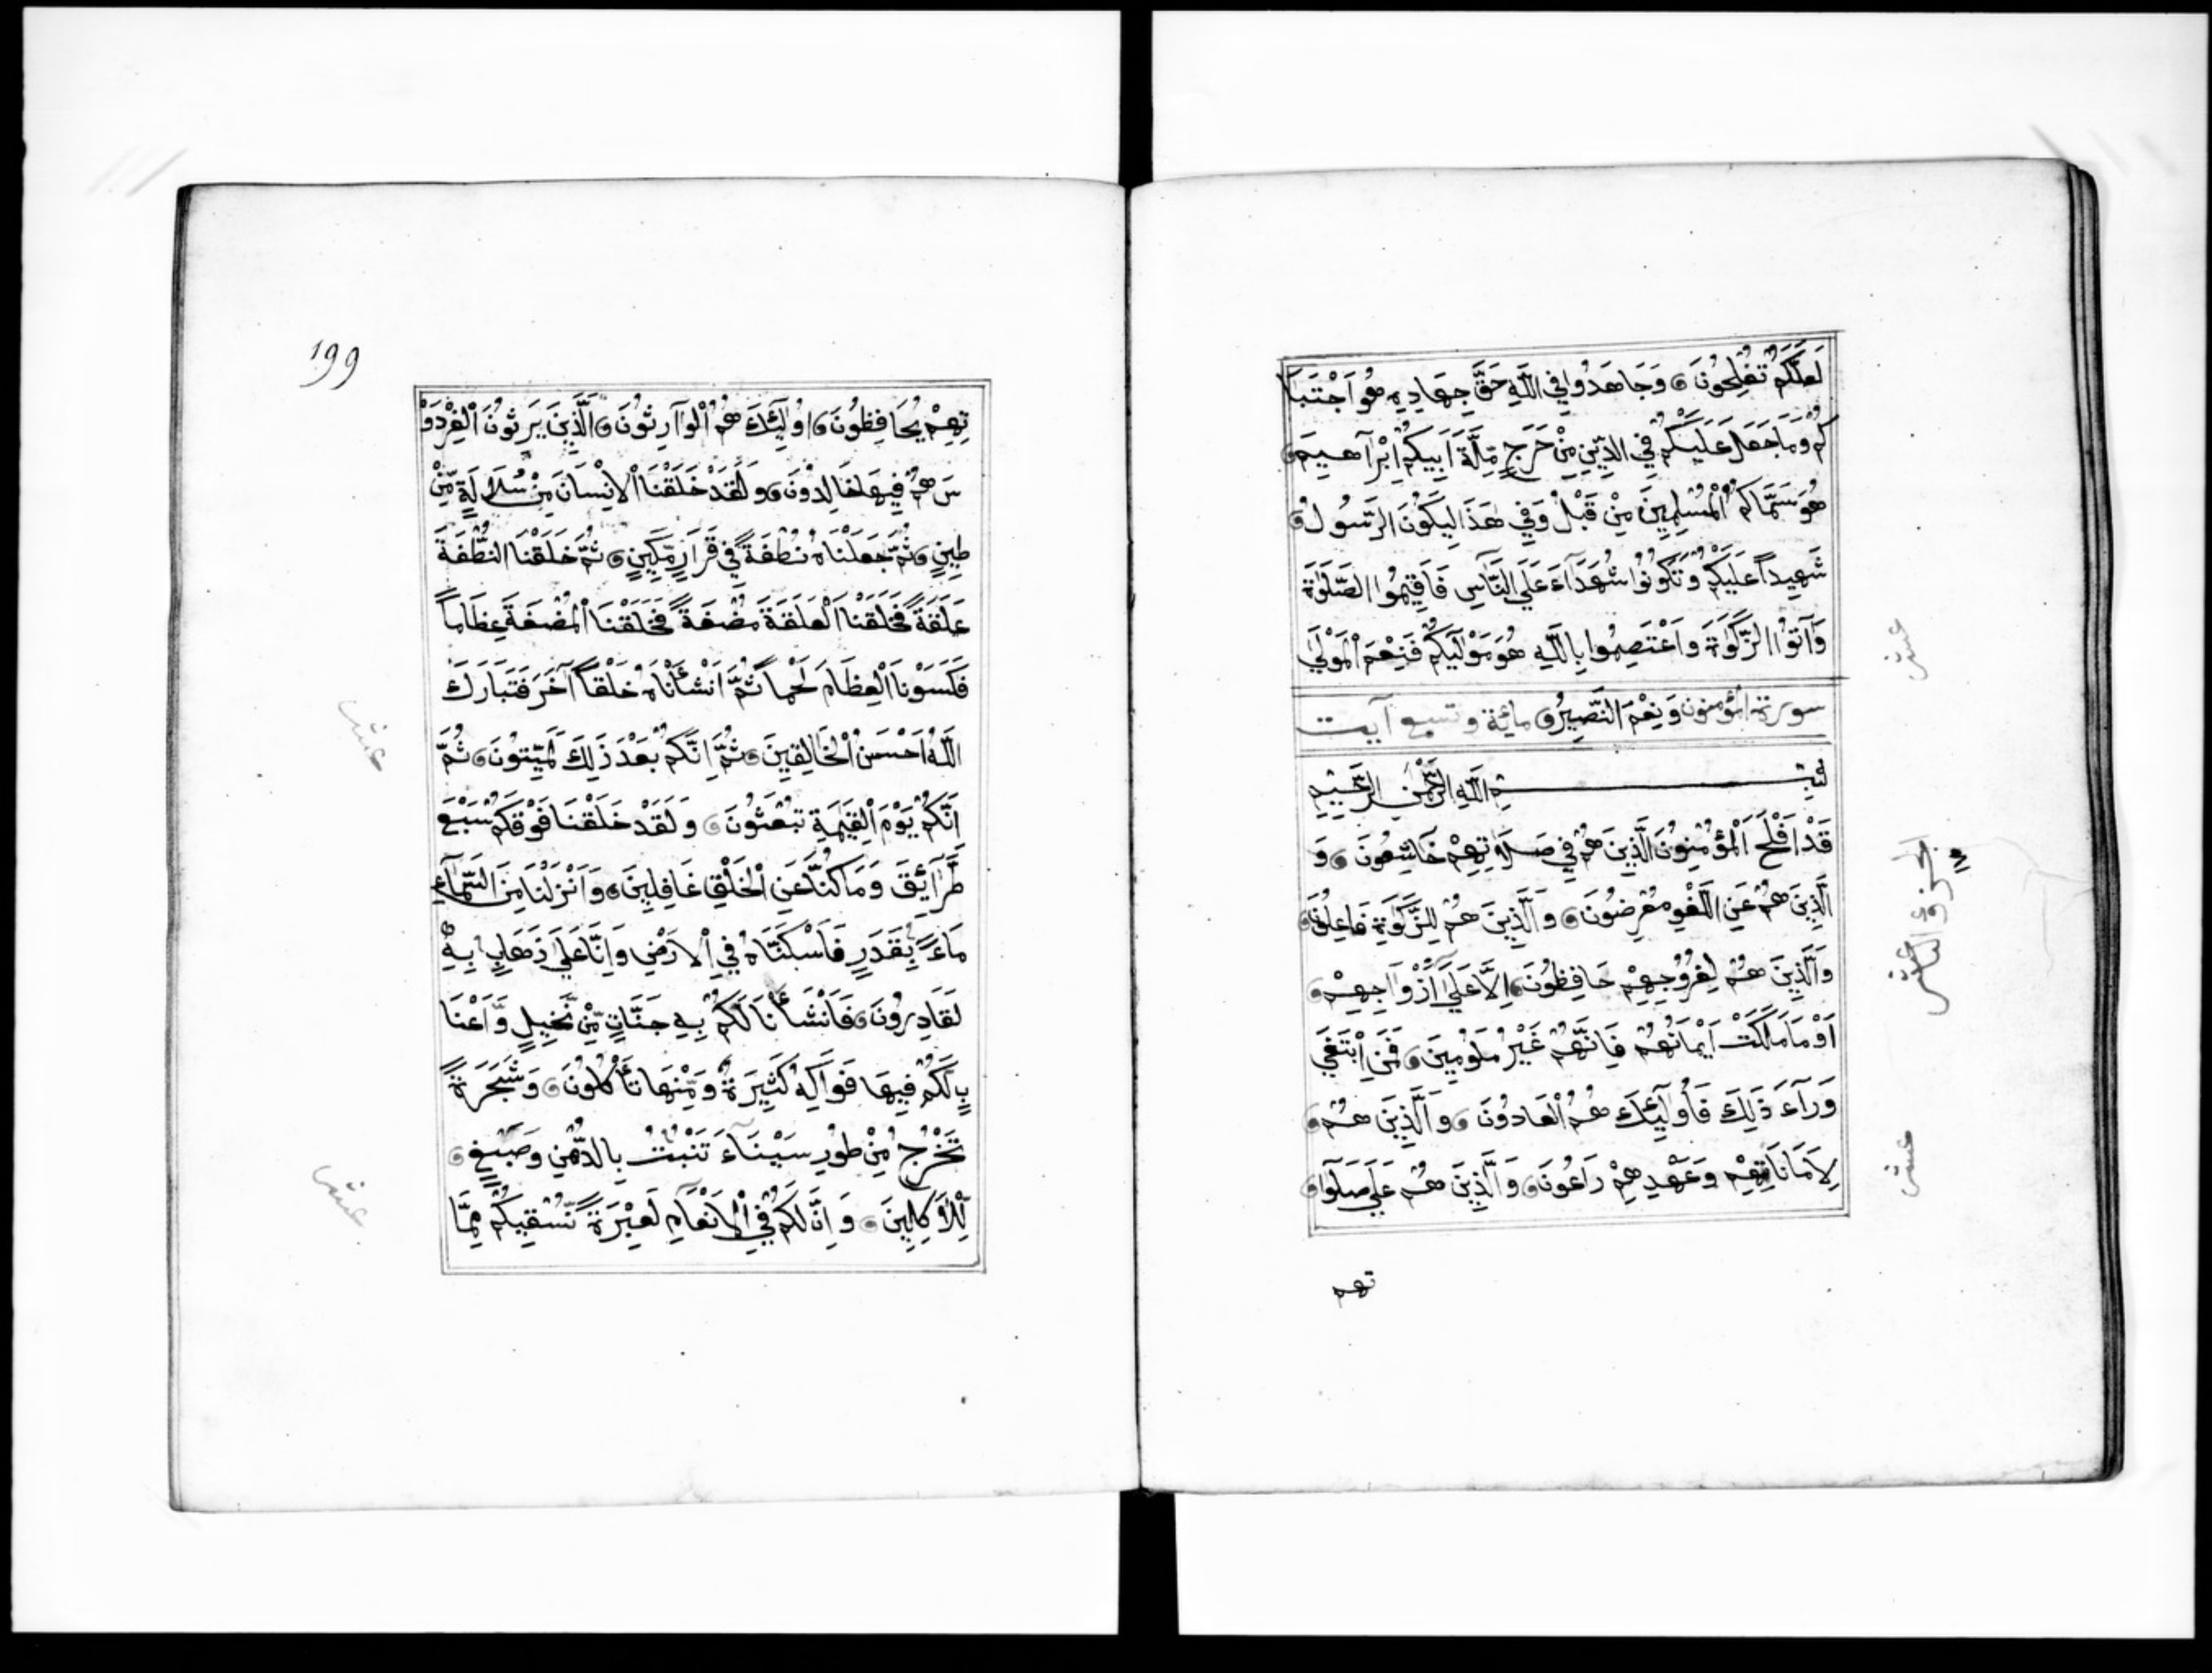 لَعَلَّكُمْ تُفْلِحُونَ وَجَاهَدُوا فِي اللَّهِ حَقَّ جِهَادِهِ هُوَ اجْتَبَا
كُمْ وَمَا جَعَلَ عَلَيْكُمْ فِي الدِّينِ مِنْ حَرَجٍ مِّلَّةَ أَبِيكُمْ إِبْرَاهِيمَ
هُوَ سَمَّاكُمُ الْمُسْلِمِينَ مِنْ قَبْلُ وَفِي هَذَا لِيَكُونَ الرَّسُولُ
شَهِيداً عَلَيْكُمْ وَتَكُونُوا شُهَدَآءَ عَلَى النَّاسِ فَأَقِيمُوا الصَّلَوٰةَ
وَآتُوا الزَّكَوٰةَ وَاعْتَصِمُوا بِاللَّهِ هُوَ مَوْلَيٰكُمْ فَنِعْمَ الْمَوْلَى
سورة المؤمنون وَنِعْمَ النَّصِيرُ مائة وتسع آيت
بِسْمِ اللَّهِ الرَّحْمَنِ الرَّحِيمِ
قَدْ أَفْلَحَ الْمُؤْمِنُونَ الَّذِينَ هُمْ فِي صَلَاتِهِمْ خَاشِعُونَ وَ
الَّذِينَ هُمْ عَنِ اللَّغْوِ مُعْرِضُونَ وَالَّذِينَ هُمْ لِلزَّكَوٰةِ فَاعِلُونَ
وَالَّذِينَ هُمْ لِفُرُوجِهِمْ حَافِظُونَ إِلَّا عَلَىٰ أَزْوَاجِهِمْ
أَوْ مَا مَلَكَتْ أَيْمَانُهُمْ فَإِنَّهُمْ غَيْرُ مَلُومِينَ فَمَنِ ابْتَغَى
وَرَآءَ ذَلِكَ فَأُولَٰئِكَ هُمُ الْعَادُونَ وَالَّذِينَ هُمْ
لِأَمَانَاتِهِمْ وَعَهْدِهِمْ رَاعُونَ وَالَّذِينَ هُمْ عَلَى صَلَوَا
تهم
عشر
الجزؤ الثامن عشر
عشر
١٩٩
تِهِمْ يُحَافِظُونَ أُولَٰئِكَ هُمُ الْوَارِثُونَ الَّذِينَ يَرِثُونَ الْفِرْدَوْ
سَ هُمْ فِيهَا خَالِدُونَ وَلَقَدْ خَلَقْنَا الْإِنْسَانَ مِنْ سُلَالَةٍ مِّنْ
طِينٍ ثُمَّ جَعَلْنَاهُ نُطْفَةً فِي قَرَارٍ مَّكِينٍ ثُمَّ خَلَقْنَا النُّطْفَةَ
عَلَقَةً فَخَلَقْنَا الْعَلَقَةَ مُضْغَةً فَخَلَقْنَا الْمُضْغَةَ عِظَاماً
فَكَسَوْنَا الْعِظَامَ لَحْماً ثُمَّ أَنْشَأْنَاهُ خَلْقاً آخَرَ فَتَبَارَكَ
اللَّهُ أَحْسَنُ الْخَالِقِينَ ثُمَّ إِنَّكُمْ بَعْدَ ذَلِكَ لَمَيِّتُونَ ثُمَّ
إِنَّكُمْ يَوْمَ الْقِيَٰمَةِ تُبْعَثُونَ وَلَقَدْ خَلَقْنَا فَوْقَكُمْ سَبْعَ
طَرَآئِقَ وَمَا كُنَّا عَنِ الْخَلْقِ غَافِلِينَ وَأَنْزَلْنَا مِنَ السَّمَآءِ
مَآءً بِقَدَرٍ فَأَسْكَنَّاهُ فِي الْأَرْضِ وَإِنَّا عَلَىٰ ذَهَابٍ بِهِ
لَقَادِرُونَ فَأَنْشَأْنَا لَكُمْ بِهِ جَنَّاتٍ مِّنْ نَّخِيلٍ وَّأَعْنَا
بٍ لَكُمْ فِيهَا فَوَاكِهُ كَثِيرَةٌ وَمِنْهَا تَأْكُلُونَ وَشَجَرَةً
تَخْرُجُ مِنْ طُورِ سَيْنَآءَ تَنْبُتُ بِالدُّهْنِ وَصِبْغٍ
لِّلْآكِلِينَ وَإِنَّ لَكُمْ فِي الْأَنْعَامِ لَعِبْرَةً نُّسْقِيكُمْ مِمَّا
عشر
عشر